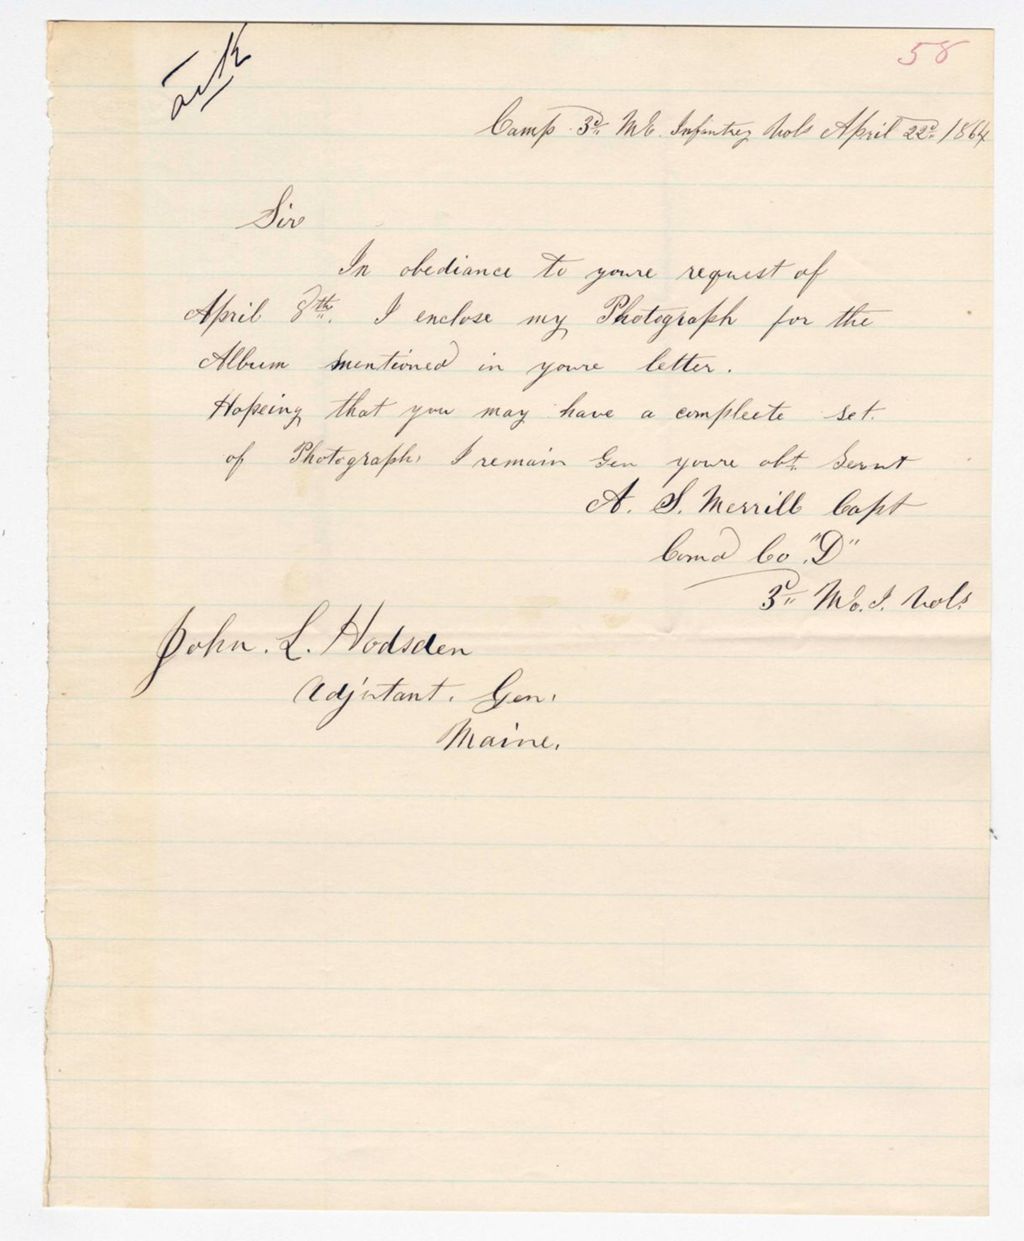 58
Camp 3d Me. Infantry Vols April 22d 1864
Sir
In obediance to youre request of
April 8th. I enclose my Photograph for the
Album mentioned in youre letter.
Hopeing that you may have a compleete set.
of Photographs I remain Gen youre obt Servnt
A. S. Merrill Capt
Comd Co. "D"
3d Me. I. Vols
John. L. Hodsden
Adjutant. Gen.
Maine.